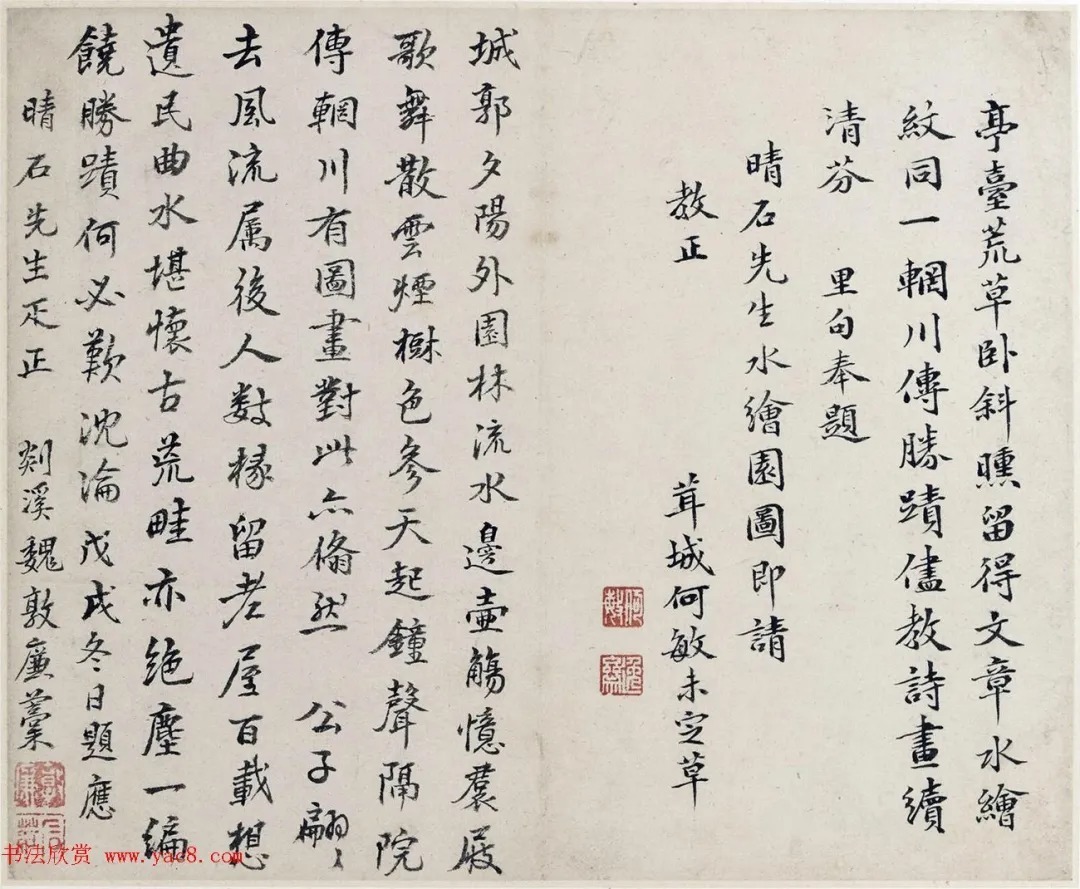 亭臺荒草卧斜曛留得文章水繪
紋同一輞川傳勝蹟儘教詩畫續
清芬 里句奉題
晴石先生水繪園圖即請
教正 茸城何敏未定草
城郭夕陽外園林流水邊壷觴憶裙屐
歌舞散雲煙樹色參天起鐘聲隔院
傳輞川有圖畫對此亦翛然 公子翩〻
去風流属後人數椽留老屋百載想
遺民曲水堪懷古荒畦亦絶塵一編
饒勝蹟何必歎沈淪戊戌冬日題應
晴石先生疋正 剡溪魏敦廉藳
书法欣赏 www.yac8.com